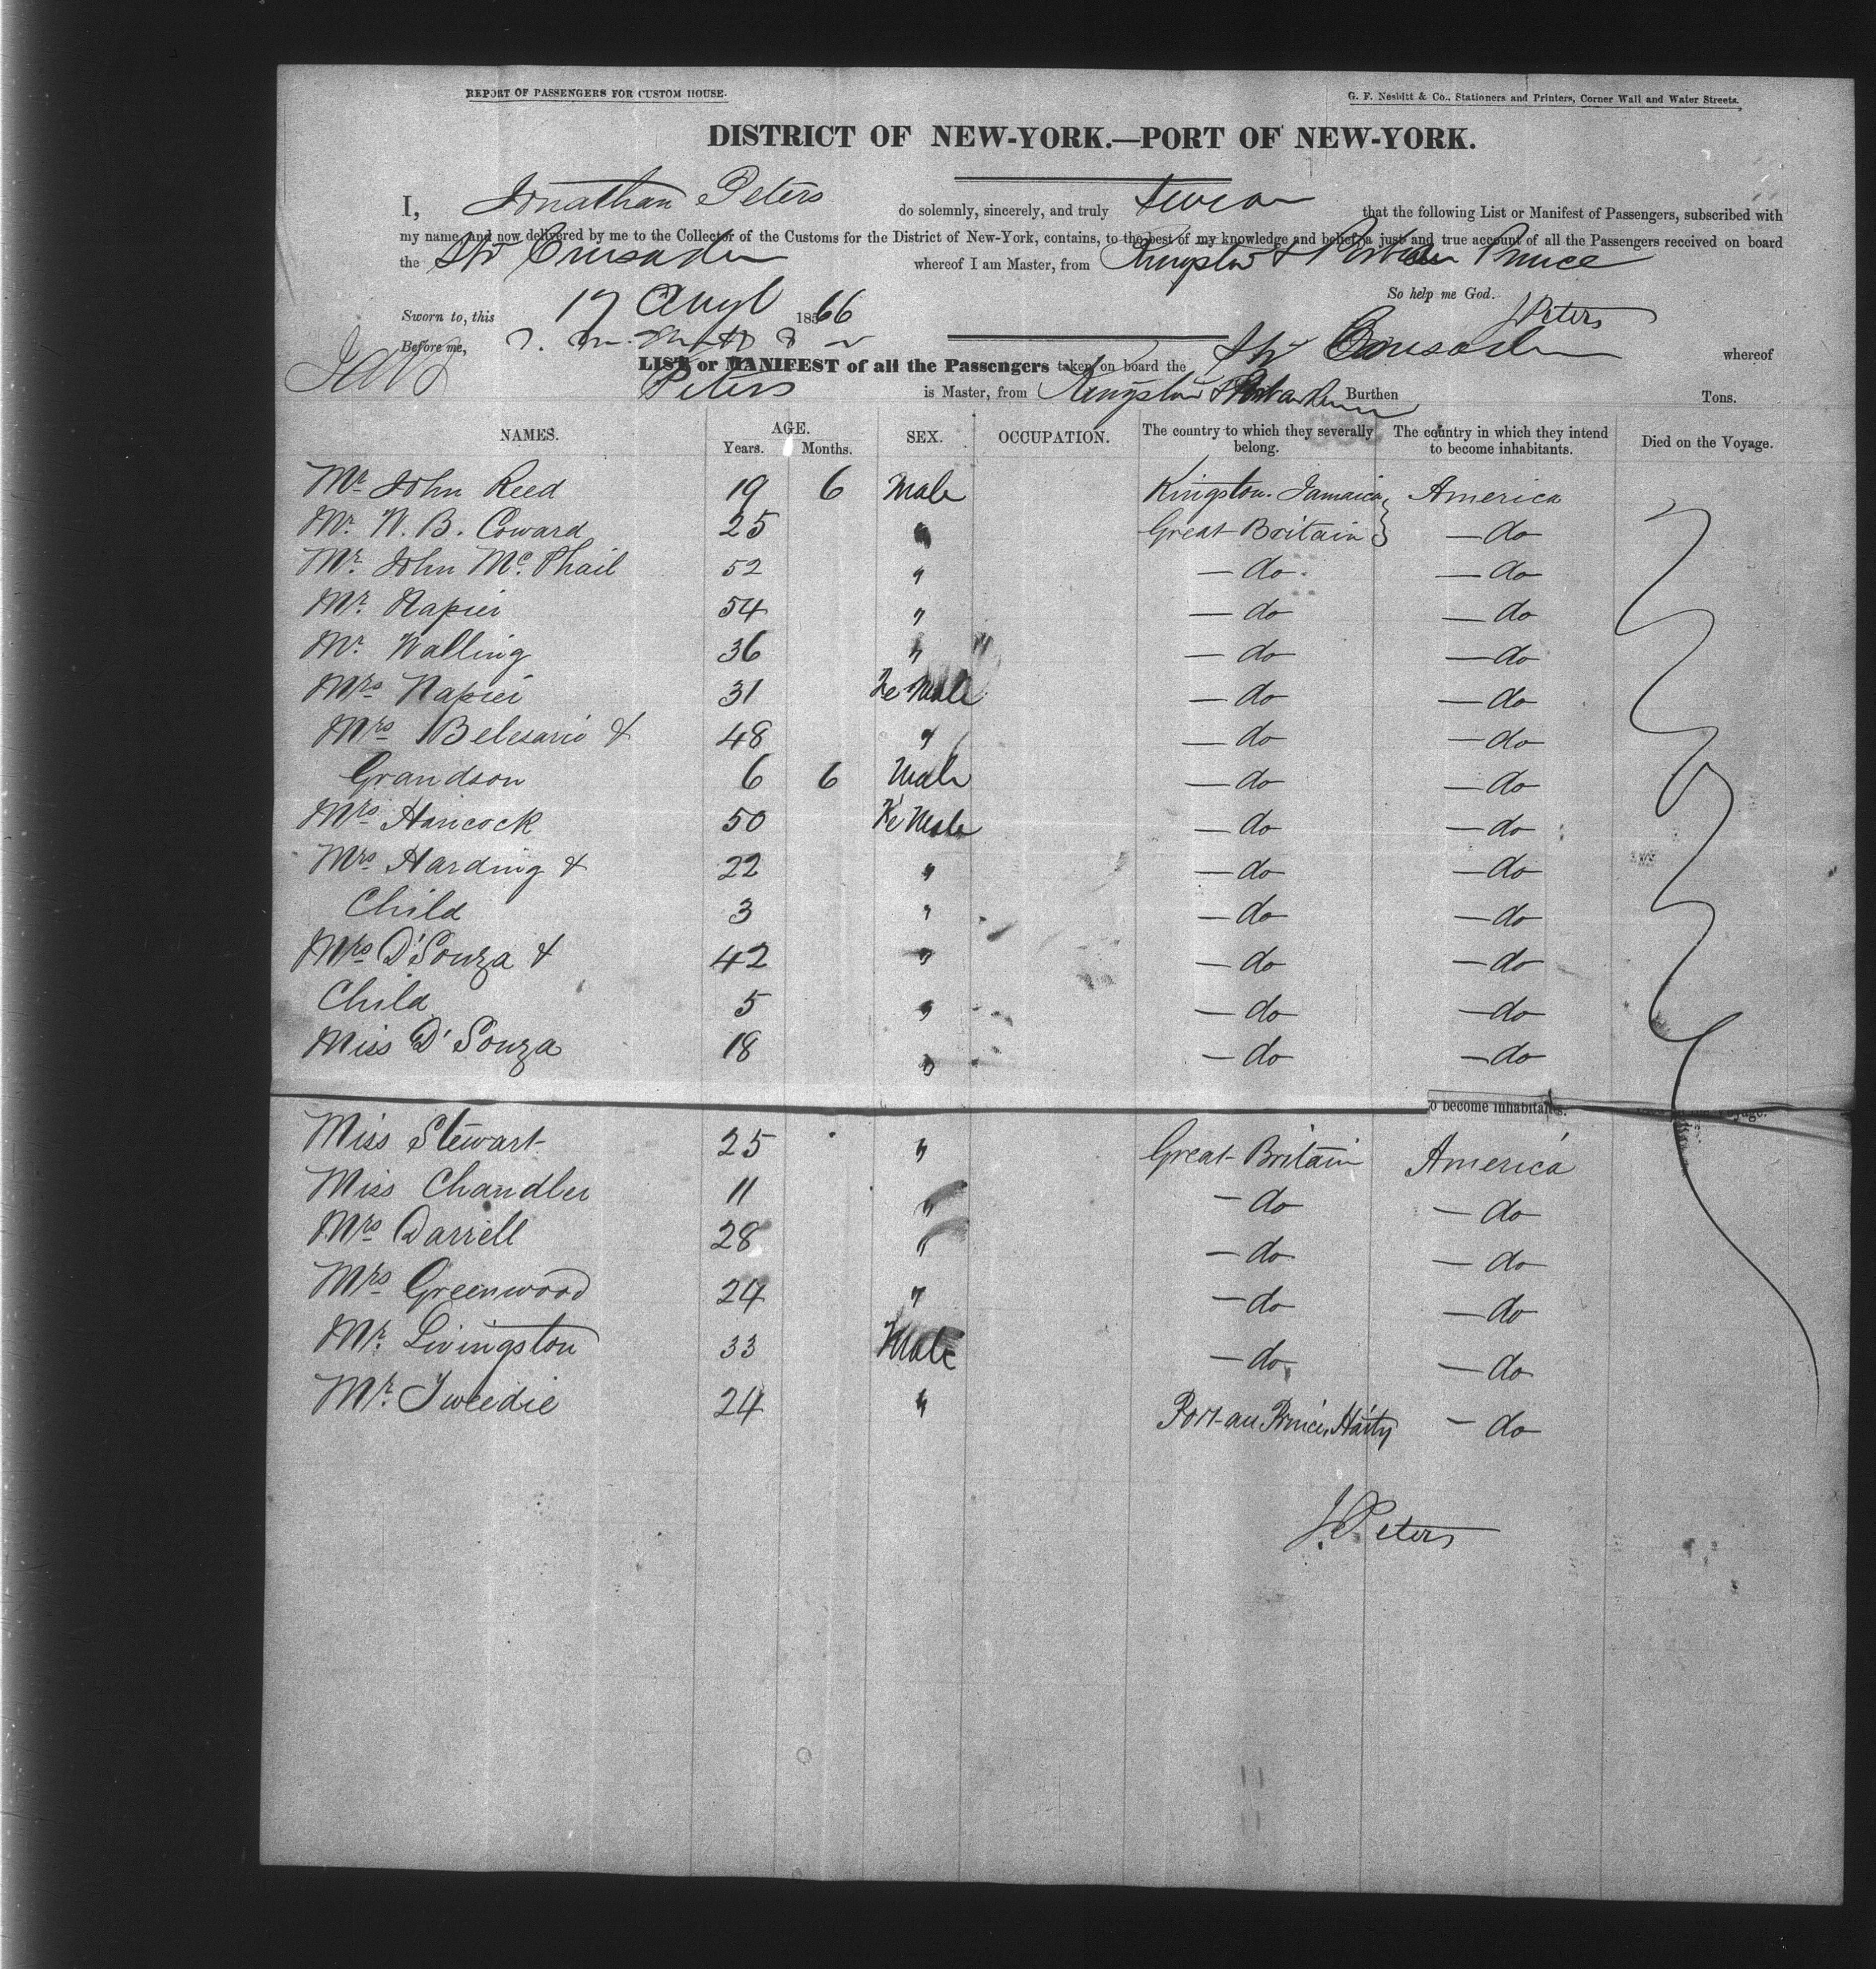 REPORT OF PASSENGERS FOR CUSTOM HOUSE.
G. F. Nesbitt & Co., Stationers and Printers, Corner Wall and Water Streets.
DISTRICT OF NEW-YORK.—PORT OF NEW-YORK.
I, Jonathan Peters do solemnly, sincerely, and truly swear that the following List or Manifest of Passengers, subscribed with
my name, and now delivered by me to the Collector of the Customs for the District of New-York, contains, to the best of my knowledge and belief, a just and true account of all the Passengers received on board
the Str Crusader whereof I am Master, from Kingston & Port au Prince
So help me God.
Sworn to, this 17 Augt 1866 J Peters
Before me,
LIST or MANIFEST of all the Passengers taken on board the Str Crusader whereof
Peters is Master, from Kingston & Port au Prince Burthen Tons.
NAMES. AGE. Years. Months. SEX. OCCUPATION. The country to which they severally belong. The country in which they intend to become inhabitants. Died on the Voyage.
Mr John Reed 19 6 Male Kingston. Jamaica, America
Mr. W. B. Coward 25 " Great Britain } — do
Mr. John Mc. Phail 52 " — do. — do
Mr. Napier 54 " — do — do
Mr. Walling 36 " " — do — do
Mrs Napier 31 Fe Male — do — do
Mrs Belesario & 48 " — do — do
Grandson 6 6 Male — do — do
Mrs Hancock 50 Fe Male — do — do
Mrs Harding & 22 " — do — do
Child 3 " — do — do
Mrs D'Souza & 42 " — do — do
Child 5 " — do — do
Miss D'Souza 18 " — do — do
to become inhabitants. Voyage.
Miss Stewart 25 " Great Britain America
Miss Chandler 11 " — do — do
Mrs Darrell 28 " — do — do
Mrs Greenwood 24 " — do — do
Mr. Livingston 33 Male — do — do
Mr. Tweedie 24 " Port-au Prince, Haity — do
J. Peters